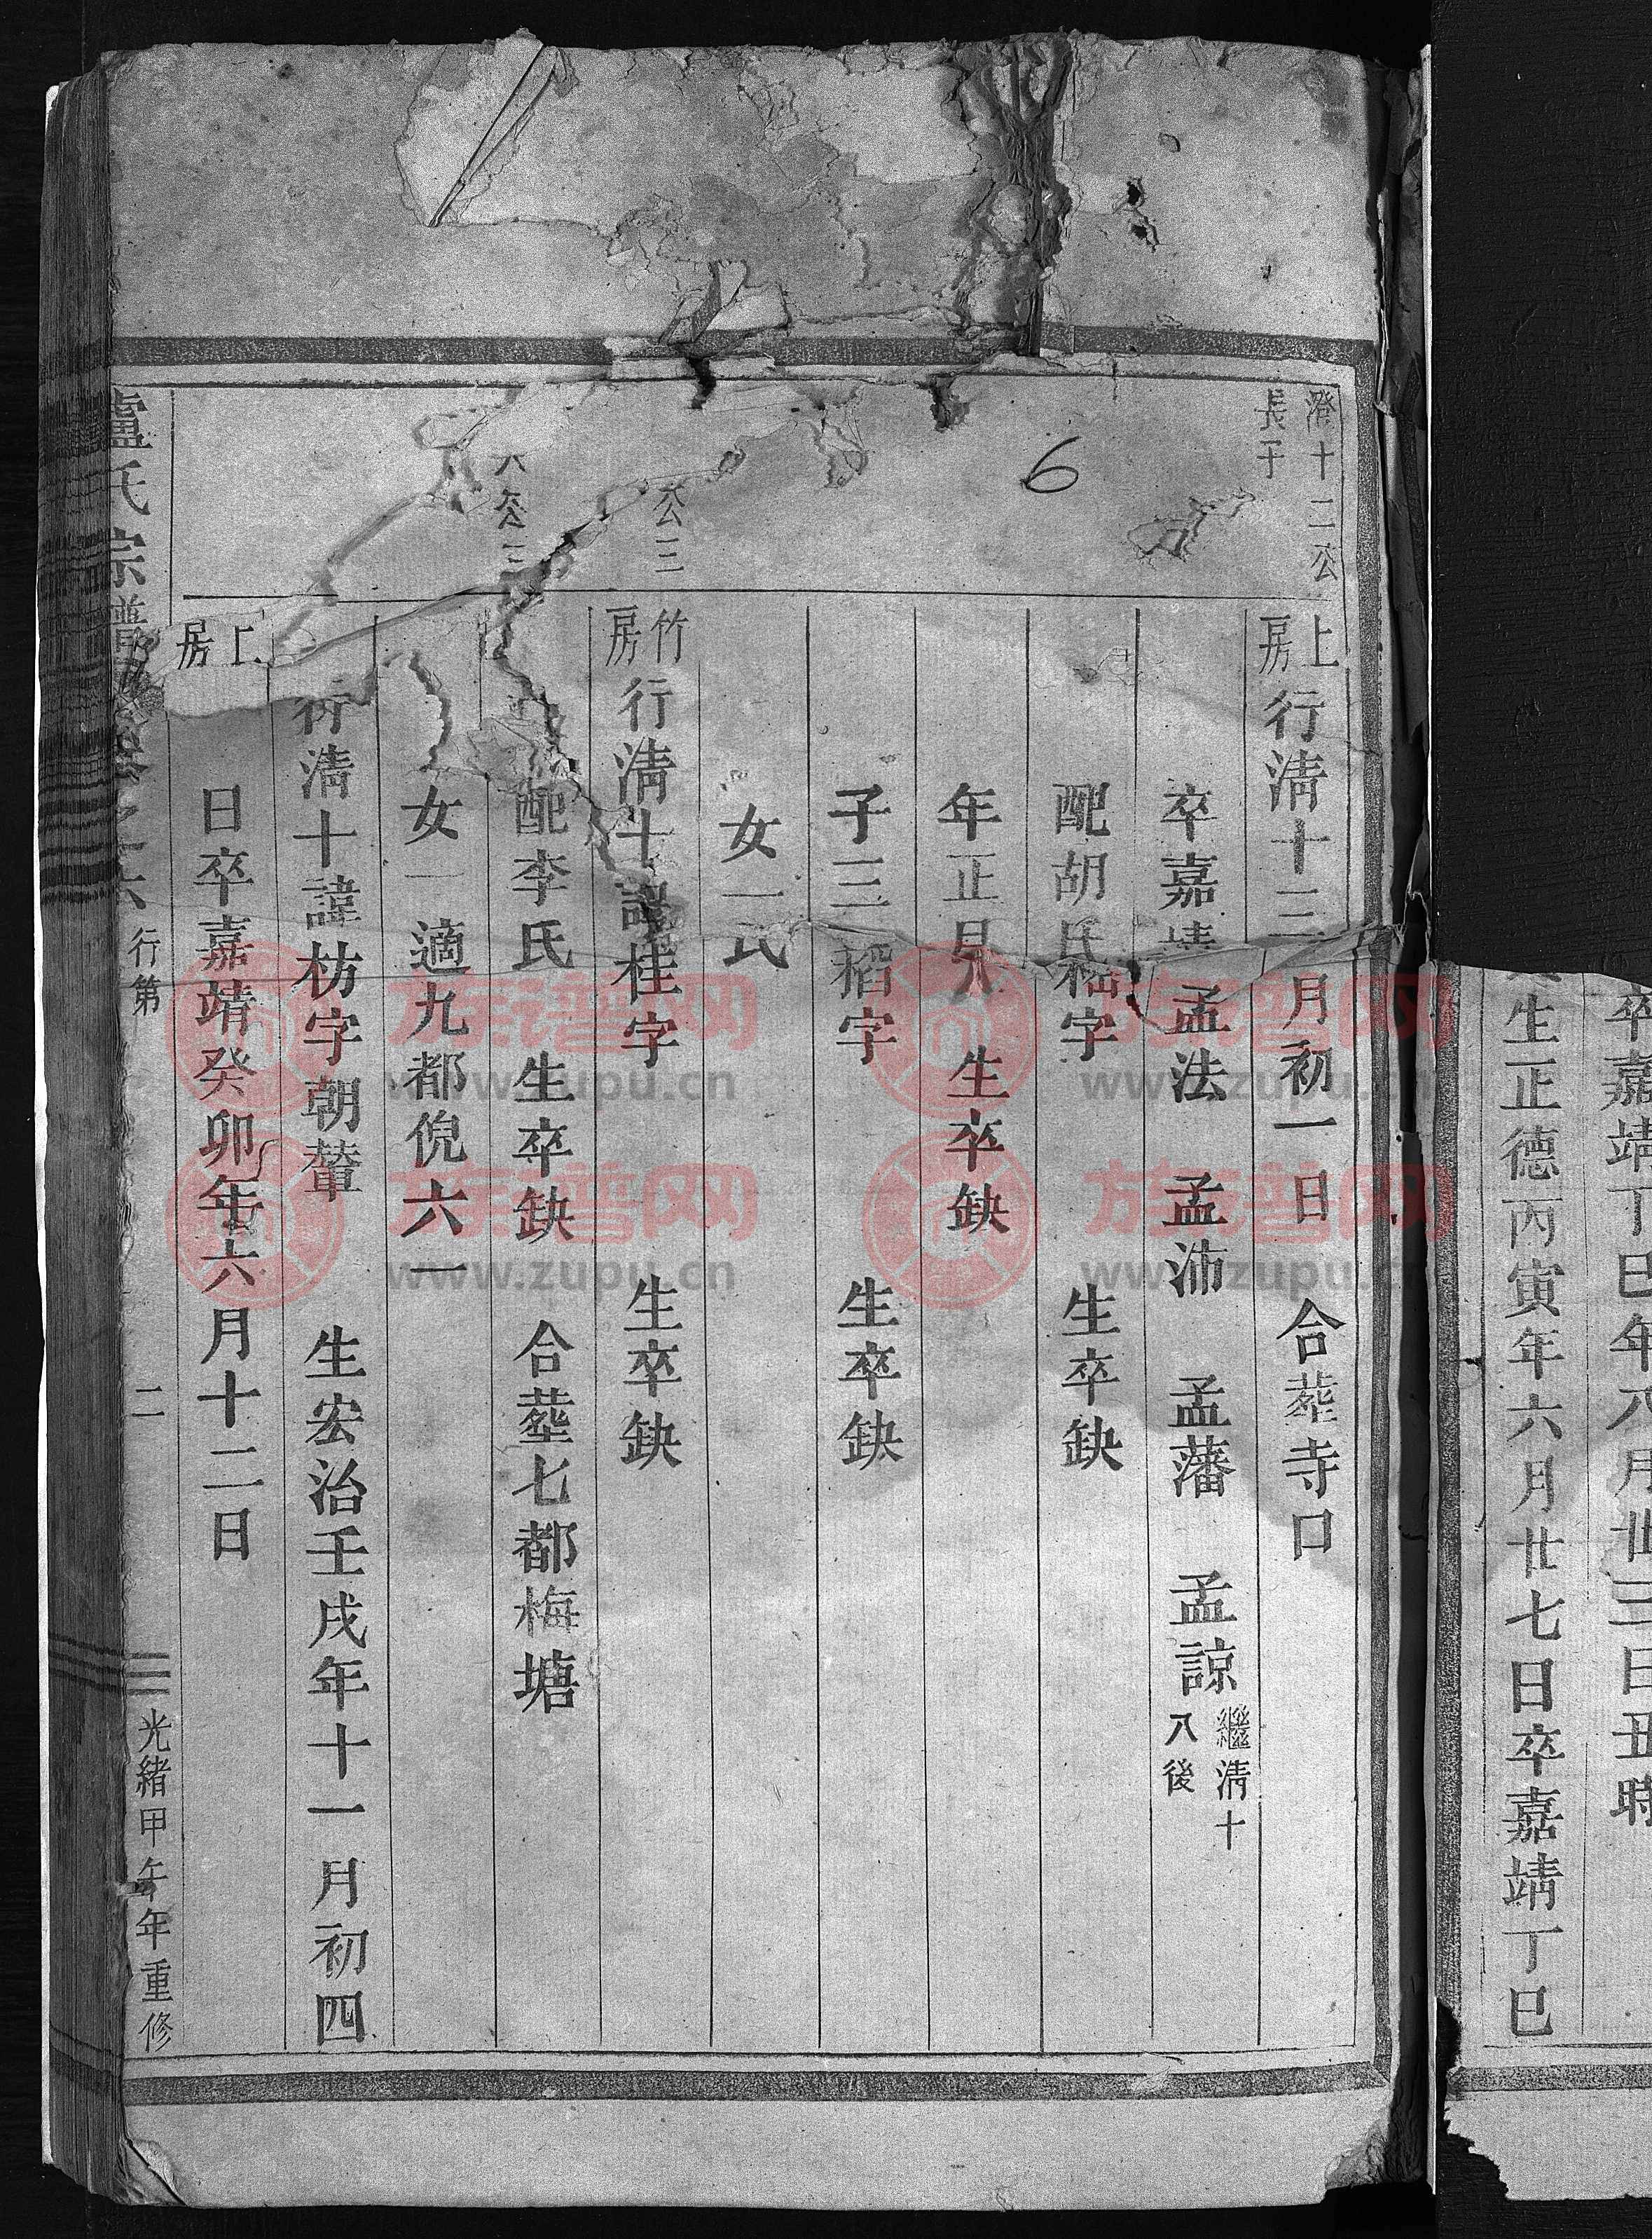 卒嘉靖丁巳年八月廿三日丑時
生正德丙寅年六月廿七日卒嘉靖丁巳
澄十二公
長子
6
公三
公三
上房
行淸十三
月初一日 合塟寺口
卒嘉靖
孟法 孟沛 孟藩 孟諒
繼淸十
八後
配胡氏
字 生卒缺
年正月
生卒缺
子三
稻字 生卒缺
女一
氏
竹房
行淸十諱桂字 生卒缺
配李氏 生卒缺 合塟七都梅塘
女一 適九都倪六一
行淸十諱枋字朝輦 生宏治壬戌年十一月初四
上房
日卒嘉靖癸卯年六月十二日
盧氏宗譜
行第
二
光緖甲午年重修
族谱网
www.zupu.cn
族谱网
www.zupu.cn
族谱网
www.zupu.cn
族谱网
www.zupu.cn